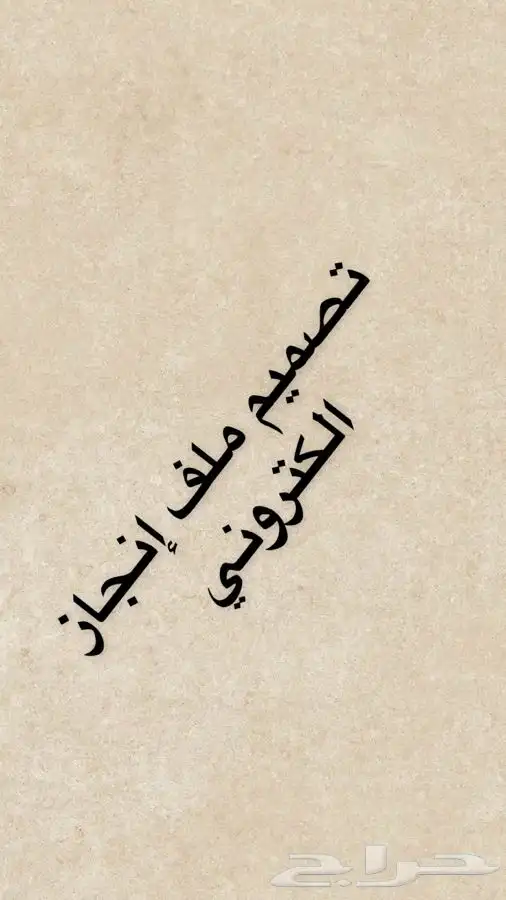 تصميم ملف إنجاز
الكتروني
حراج